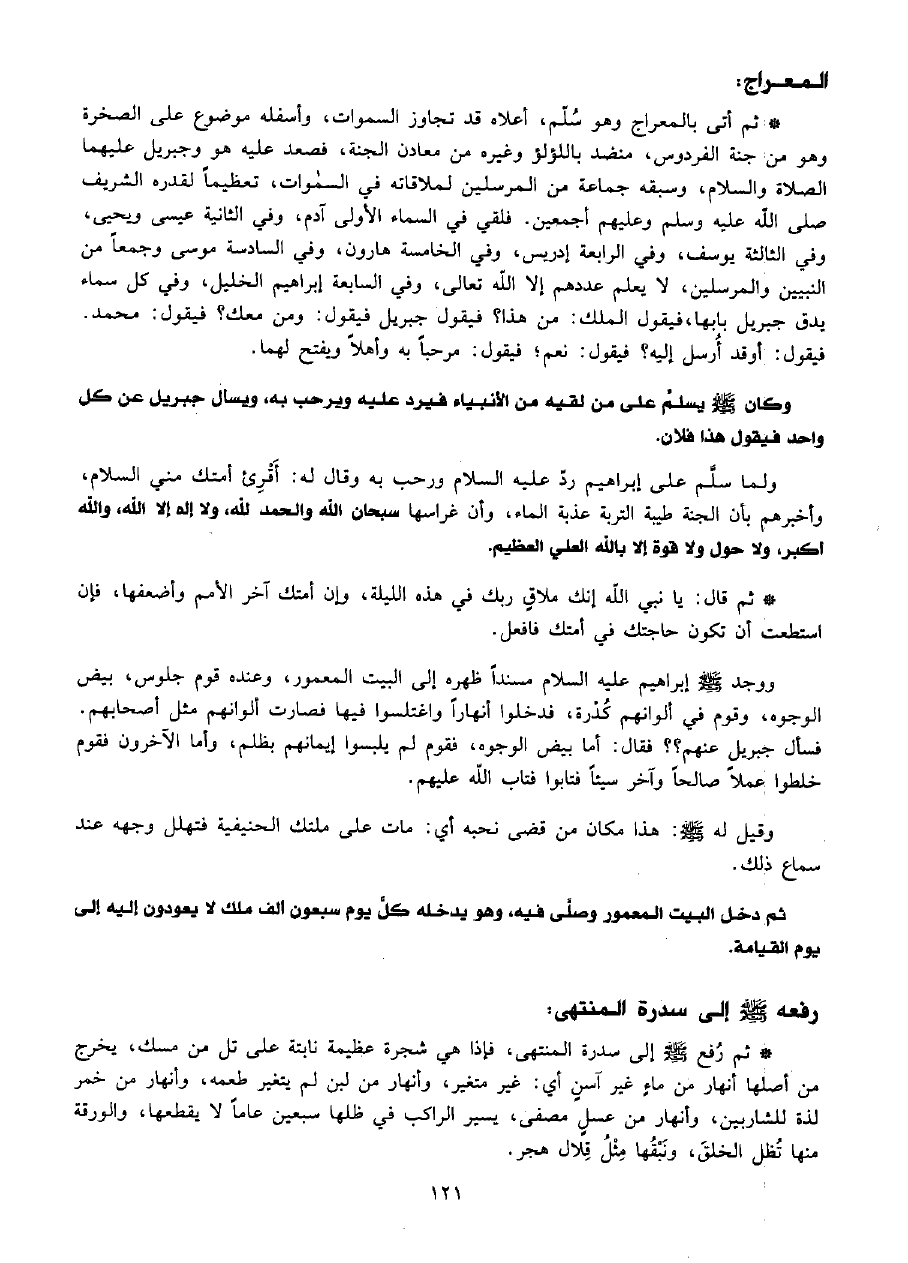 المعراج:
* ثم أتى بالمعراج وهو سُلّم، أعلاه قد تجاوز السموات، وأسفله موضوع على الصخرة
وهو من جنة الفردوس، منضد باللؤلؤ وغيره من معادن الجنة، فصعد عليه هو وجبريل عليهما
الصلاة والسلام، وسبقه جماعة من المرسلين لملاقاته في السمٰوات، تعظيماً لقدره الشريف
صلى اللّه عليه وسلم وعليهم أجمعين. فلقي في السماء الأولى آدم، وفي الثانية عيسى ويحيى،
وفي الثالثة يوسف، وفي الرابعة إدريس، وفي الخامسة هارون، وفي السادسة موسى وجمعاً من
النبيين والمرسلين، لا يعلم عددهم إلا اللّه تعالى، وفي السابعة إبراهيم الخليل، وفي كل سماء
يدق جبريل بابها،فيقول الملك: من هذا؟ فيقول جبريل فيقول: ومن معك؟ فيقول: محمد.
فيقول: أوقد أُرسل إليه؟ فيقول: نعم؛ فيقول: مرحباً به وأهلاً ويفتح لهما.
وكان ﷺ يسلمُ على من لقيه من الأنبياء فيرد عليه ويرحب به، ويسأل جبريل عن كل
واحد فيقول هذا فلان.
ولما سلَّم على إبراهيم ردّ عليه السلام ورحب به وقال له: أَقْرِئ أمتك مني السلام،
وأخبرهم بأن الجنة طيبة التربة عذبة الماء، وأن غراسها سبحان الله والحمد لله، ولا إله إلا الله، والله
أكبر، ولا حول ولا قوة إلا بالله العلي العظيم.
* ثم قال: يا نبي اللّه إنك ملاقٍ ربك في هذه الليلة، وإن أمتك آخر الأمم وأضعفها، فإن
استطعت أن تكون حاجتك في أمتك فافعل.
ووجد ﷺ إبراهيم عليه السلام مسنداً ظهره إلى البيت المعمور، وعنده قوم جلوس، بيض
الوجوه، وقوم في ألوانهم كُدْرة، فدخلوا أنهاراً واغتلسوا فيها فصارت ألوانهم مثل أصحابهم.
فسأل جبريل عنهم؟؟ فقال: أما بيض الوجوه، فقوم لم يلبسوا إيمانهم بظلم، وأما الآخرون فقوم
خلطوا عملاً صالحاً وآخر سيئاً فتابوا فتاب اللّه عليهم.
وقيل له ﷺ: هذا مكان من قضى نحبه أي: مات على ملتك الحنيفية فتهلل وجهه عند
سماع ذلك.
ثم دخل البيت المعمور وصلَّى فيه، وهو يدخله كلَّ يوم سبعون ألف ملك لا يعودون إليه إلى
يوم القيامة.
رفعه ﷺ إلى سدرة المنتهى:
* ثم رُفع ﷺ إلى سدرة المنتهى، فإذا هي شجرة عظيمة نابتة على تل من مسك، يخرج
من أصلها أنهار من ماءٍ غير آسنٍ أي: غير متغير، وأنهار من لبن لم يتغير طعمه، وأنهار من خمر
لذة للشاربين، وأنهار من عسلٍ مصفى، يسير الراكب في ظلها سبعين عاماً لا يقطعها، والورقة
منها تُظل الخلقَ، ونَبْقُها مِثْلُ قِلال هجر.
١٢١